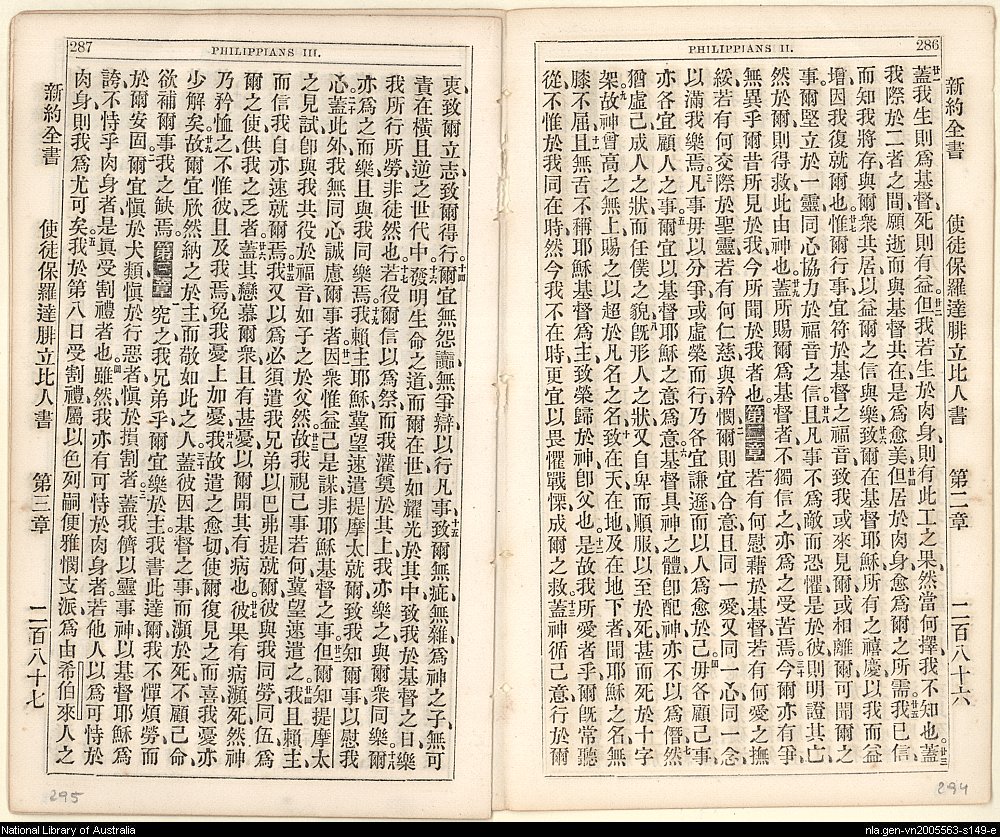 286
PHILIPPIANS II.
新約全書 使徒保羅達腓立比人書 第二章 二百八十六
蓋我生則爲基督、死則有益、但我若生於肉身、則有此工之果、然當何擇、我不知也、蓋
我際於二者之間、願逝而與基督共在、是爲愈美、但居於肉身、愈爲爾之所需、我已信
而知我將存、與爾衆共居、以益爾之信與樂、致爾在基督耶穌所有之禧慶、以我而益
增、因我復就爾也、惟爾行事宜符於基督之福音、致我或來見爾、或相離、可聞爾之
事、爾堅立於一靈、同心協力於福音之信、且凡事不爲敵而恐懼、是於彼則明證其亡、
然於爾則得救、此由神也、蓋所賜爾爲基督者、不獨信之、亦爲之受苦焉、今爾亦有爭、
無異乎爾昔所見於我、今所聞於我者也、第二章 若有何慰藉於基督、若有何愛之撫
綏、若有何交際於聖靈、若有何仁慈與矜憫、爾則宜合意、且同一愛、又同一心、同一念、
以滿我樂焉、凡事毋以分爭、或虛榮而行、乃各宜謙遜、而以人爲愈於己、毋各顧己事、
亦各宜顧人之事、爾宜以基督耶穌之意爲意、基督具神之體、卽配神、亦不以爲僭、然
猶虛己、成人之狀、而任僕之貌、旣形人之狀、又自卑而順服、以至於死、甚而死於十字
架、故神曾高之無上、賜之以超於凡名之名、致在天、在地、及在地下者、聞耶穌之名、無
膝不屈、且無舌不稱耶穌基督爲主、致榮歸於神、卽父也、是故我所愛者乎、爾旣常聽
從、不惟於我同在時、然今我不在時、更宜以畏懼戰慄、成爾之救、蓋神循己意、行於爾
294
287
PHILIPPIANS III.
衷、致爾立志、致爾得行、爾宜無怨讟、無爭辯、以行凡事、致爾無疵、無雜、爲神之子、無可
責、在橫且逆之世代中、發明生命之道、而爾在世如耀光於其中、致我於基督之日、樂
我所行所勞非徒然也、若役爾信以爲祭、而我灌奠於其上、我亦樂之、與爾衆同樂、爾
亦爲之而樂、且與我同樂焉、我賴主耶穌、冀望速遣提摩太就爾、致我知爾事、以慰我
心、蓋此外我無同心、誠慮爾事者、因衆惟益己是謀、非耶穌基督之事、但爾知提摩太
之見試、卽與我共役於福音、如子之於父然、故我視己事若何、冀望速遣之、我且賴主、
而信我自亦速就爾焉、我又以爲必須遣我兄弟以巴弗提就爾、彼與我同勞同伍、爲
爾之使、供我之乏者、蓋其戀慕爾衆、且有甚憂、以爾聞其有病也、彼果有病瀕死、然神
乃矜恤之、不惟彼、且及我焉、免我憂上加憂、我故遣之愈切、使爾復見之而喜、我憂亦
少解矣、故爾宜欣然納之於主、而敬如此之人、蓋彼因基督之事而瀕於死、不顧己命、
欲補爾事我之缺焉、第三章 究之我兄弟乎、爾宜樂於主、我書此達爾、我不憚煩勞、而
於爾安固、爾宜愼於犬類、愼於行惡者、愼於損割者、蓋我儕以靈事神、以基督耶穌爲
誇、不恃乎肉身者、是眞受割禮者也、雖然、我亦有可恃於肉身者、若他人以爲可恃於
肉身、則我爲尤可矣、我於第八日受割禮、屬以色列嗣、便雅憫支派、爲由希伯來人之
新約全書 使徒保羅達腓立比人書 第三章 二百八十七
295
National Library of Australia
nla.gen-vn2005563-s149-e